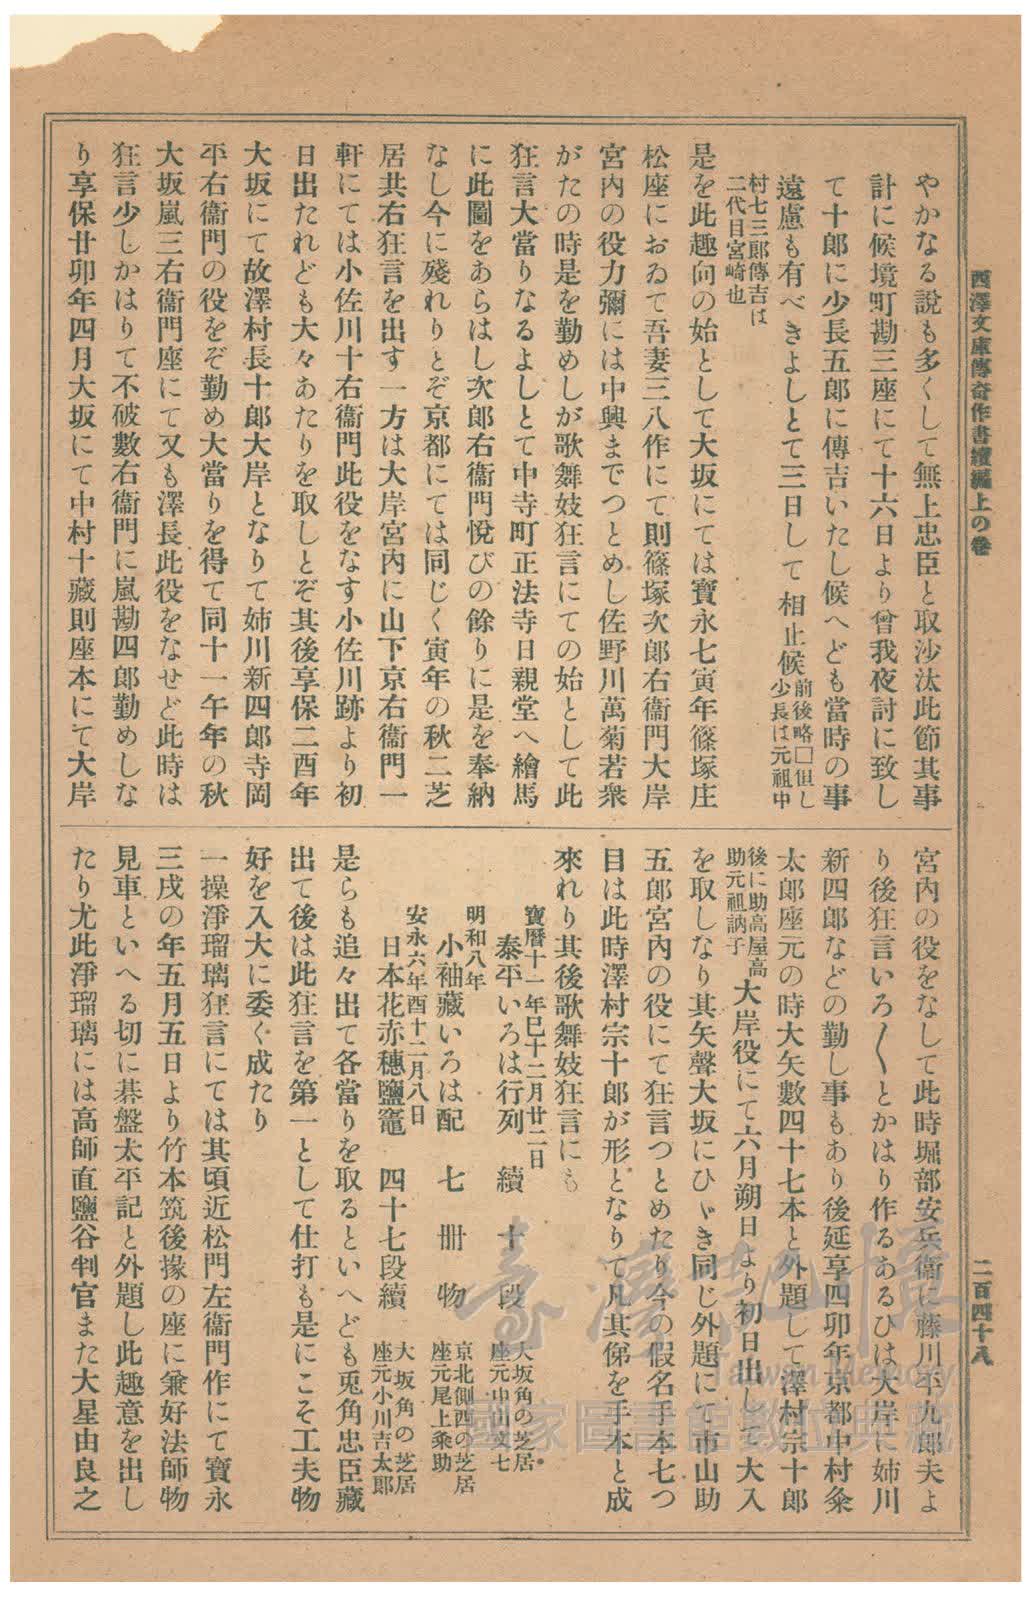 西澤文庫傳奇作書續編上の卷
二百四十八
やかなる說も多くして無上忠臣と取沙汰此節其事
計に候境町勘三座にて十六日より曾我夜討に致し
て十郞に少長五郞に傳吉いたし候へども當時の事
遠慮も有べきよしとて三日して相止候前後略□但し
少長は元祖中
村七三郞傳吉は
二代目宮崎也
是を此趣向の始として大坂にては寶永七寅年篠塚庄
松座におゐて吾妻三八作にて則篠塚次郞右衞門大岸
宮內の役力彌には中興までつとめし佐野川萬菊若衆
がたの時是を勤めしが歌舞妓狂言にての始として此
狂言大當りなるよしとて中寺町正法寺日親堂へ繪馬
に此圖をあらはし次郞右衞門悅びの餘りに是を奉納
なし今に殘れりとぞ京都にては同じく寅年の秋二芝
居共右狂言を出す一方は大岸宮內に山下京右衞門一
軒にては小佐川十右衞門此役をなす小佐川跡より初
日出たれども大々あたりを取しとぞ其後享保二酉年
大坂にて故澤村長十郞大岸となりて姉川新四郞寺岡
平右衞門の役をぞ勤め大當りを得て同十一午年の秋
大坂嵐三右衞門座にて又も澤長此役をなせど此時は
狂言少しかはりて不破數右衞門に嵐勘四郞勤めしな
り享保廿卯年四月大坂にて中村十藏則座本にて大岸
宮內の役をなして此時堀部安兵衞に藤川平九郞夫よ
り後狂言いろ〳〵とかはり作るあるひは大岸に姉川
新四郞などの勤し事もあり後延享四卯年京都中村粂
太郞座元の時大矢數四十七本と外題して澤村宗十郞
後に助高屋高
助元祖訥子
大岸役にて六月朔日より初日出して大入
を取しなり其矢聲大坂にひゞき同じ外題にて市山助
五郞宮內の役にて狂言つとめたり今の假名手本七つ
目は此時澤村宗十郞が形となりて凡其俤を手本と成
來れり其後歌舞妓狂言にも
寶曆十一年巳十二月廿二日
泰平いろは行列　續十段　大坂角の芝居
座元中山文七
明和八年
小袖藏いろは配　七冊物　京北側西の芝居
座元尾上粂助
安永六年酉十二月八日
日本花赤穗鹽竈　四十七段續　大坂角の芝居
座元小川吉太郞
是らも追々出て各當りを取るといへども兎角忠臣藏
出て後は此狂言を第一として仕打も是にこそ工夫物
好を入大に委く成たり
一操淨瑠璃狂言にては其頃近松門左衞門作にて寶永
三戌の年五月五日より竹本筑後掾の座に兼好法師物
見車といへる切に碁盤太平記と外題し此趣意を出し
たり尤此淨瑠璃には高師直鹽谷判官また大星由良之
臺灣記憶
Taiwan Memory
國家圖書館數位典藏